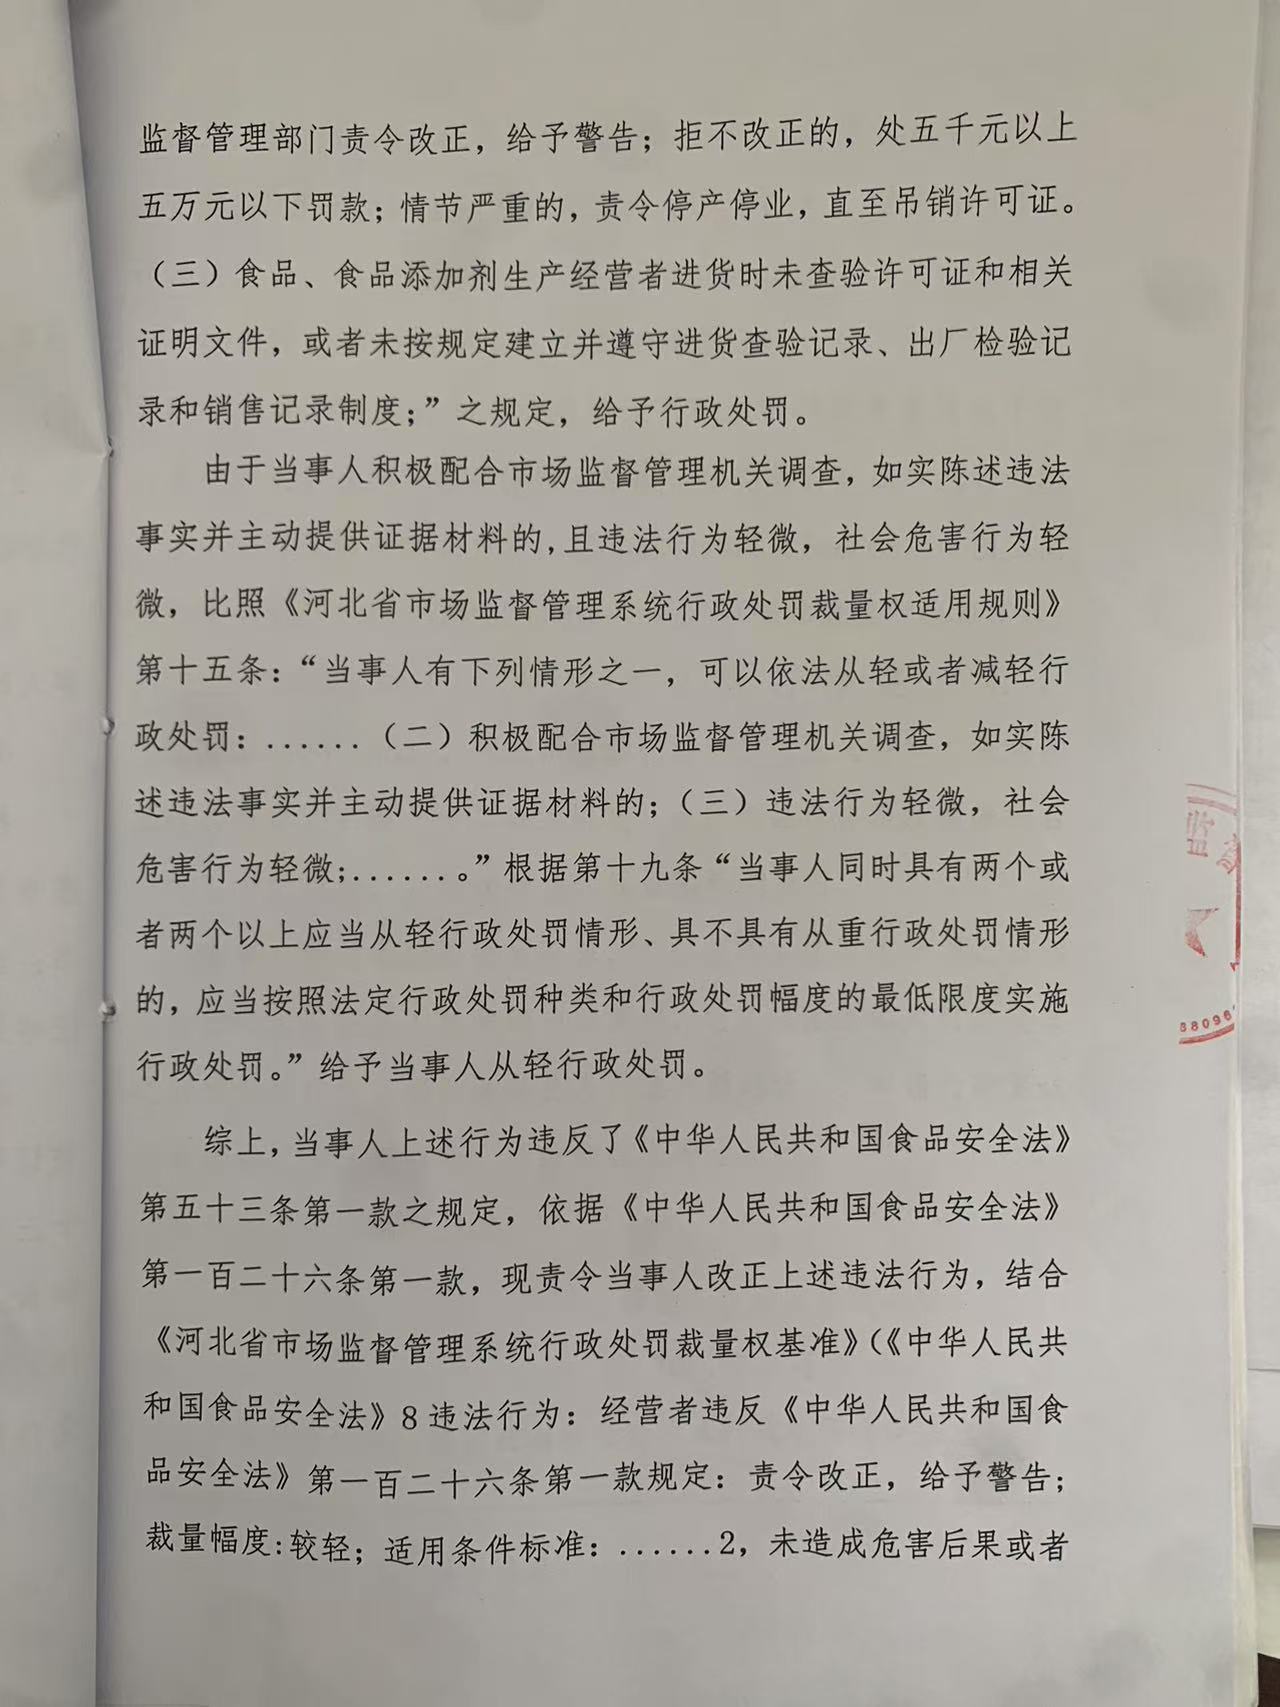 监督管理部门责令改正，给予警告；拒不改正的，处五千元以上
五万元以下罚款；情节严重的，责令停产停业，直至吊销许可证。
（三）食品、食品添加剂生产经营者进货时未查验许可证和相关
证明文件，或者未按规定建立并遵守进货查验记录、出厂检验记
录和销售记录制度；”之规定，给予行政处罚。
由于当事人积极配合市场监督管理机关调查，如实陈述违法
事实并主动提供证据材料的,且违法行为轻微，社会危害行为轻
微，比照《河北省市场监督管理系统行政处罚裁量权适用规则》
第十五条：“当事人有下列情形之一，可以依法从轻或者减轻行
政处罚：......（二）积极配合市场监督管理机关调查，如实陈
述违法事实并主动提供证据材料的；（三）违法行为轻微，社会
危害行为轻微;......。”根据第十九条“当事人同时具有两个或
者两个以上应当从轻行政处罚情形、具不具有从重行政处罚情形
的，应当按照法定行政处罚种类和行政处罚幅度的最低限度实施
行政处罚。”给予当事人从轻行政处罚。
综上，当事人上述行为违反了《中华人民共和国食品安全法》
第五十三条第一款之规定，依据《中华人民共和国食品安全法》
第一百二十六条第一款，现责令当事人改正上述违法行为，结合
《河北省市场监督管理系统行政处罚裁量权基准》（《中华人民共
和国食品安全法》8违法行为：经营者违反《中华人民共和国食
品安全法》第一百二十六条第一款规定：责令改正，给予警告；
裁量幅度:较轻；适用条件标准：......2，未造成危害后果或者
监
8096